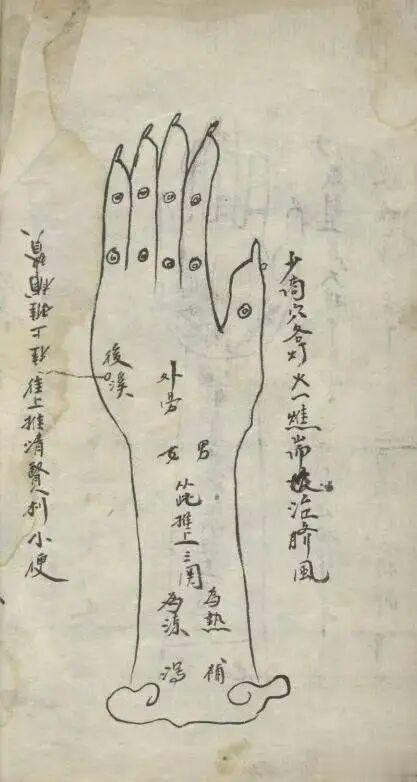 少商穴各灯火一燋
治臍風
後溪
外劳
男
女
从此推上三関
為热
為凉
補
瀉
往上推清腎利小便
往下推補腎